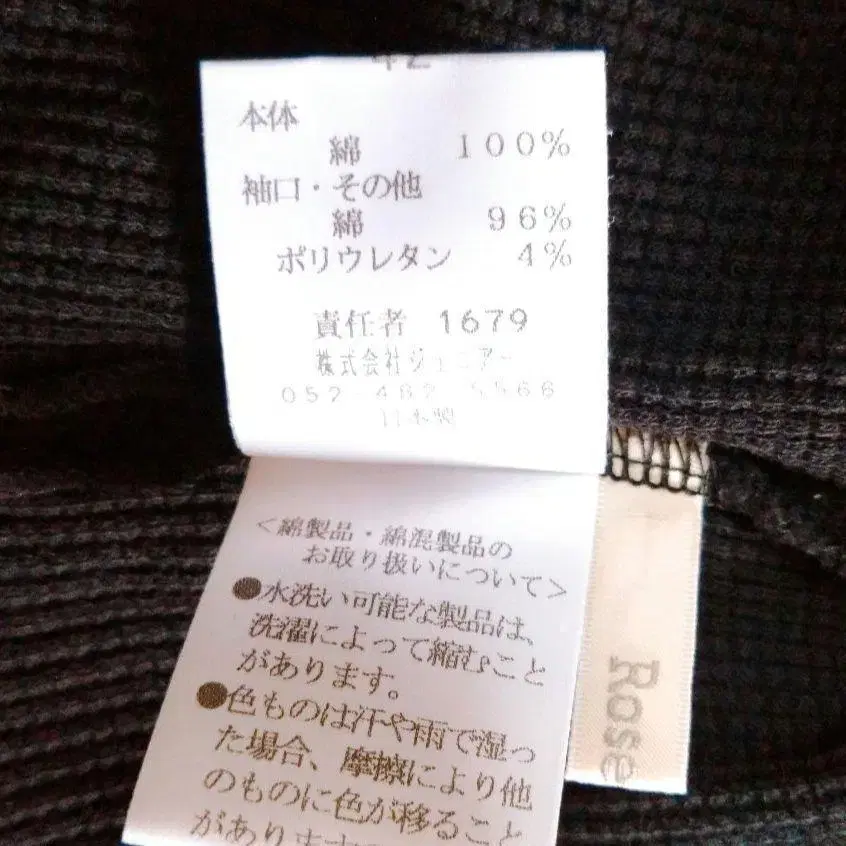 42
本体
綿 100%
袖口・その他
綿 96%
ポリウレタン 4%
責任者 1679
株式会社ジュニアー
052 482 5566
日本製
<綿製品・綿混製品の
お取り扱いについて>
●水洗い可能な製品は、
洗濯によって縮むこと
があります。
●色ものは汗や雨で湿っ
た場合、摩擦により他
のものに色が移ること
があります
Rose